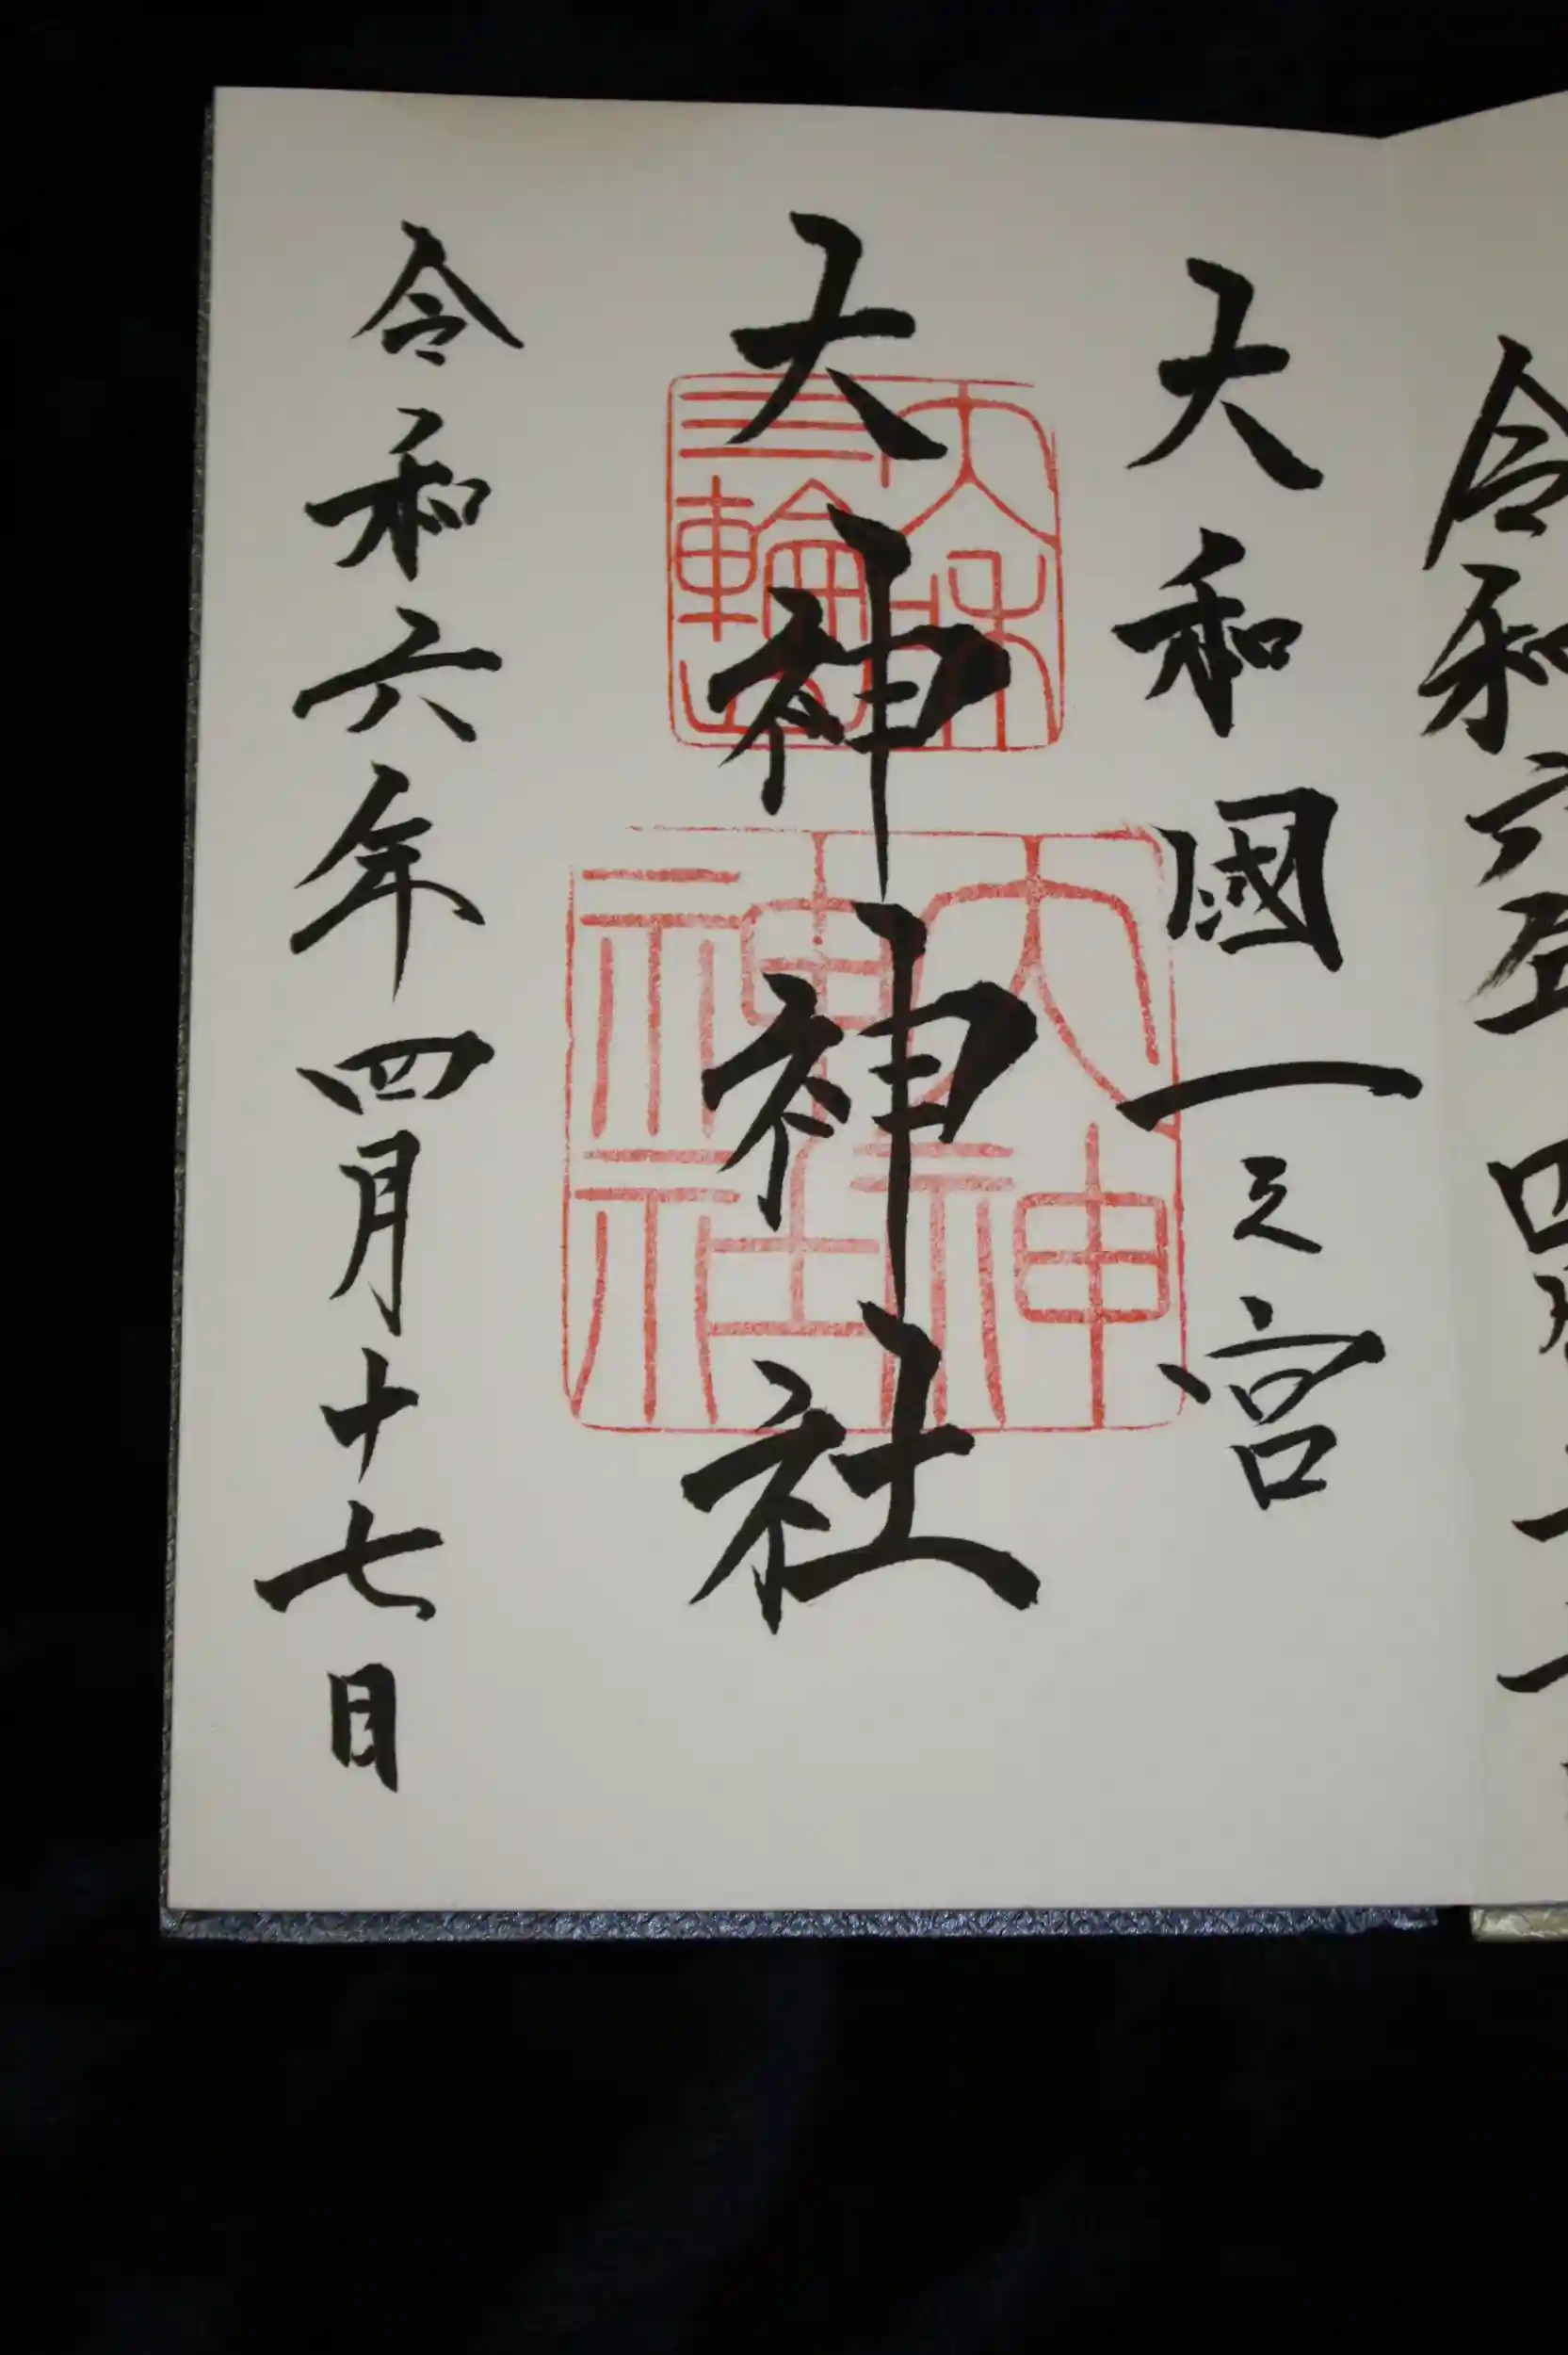 令和六年四月
大和國一之宮
大神神社
令和六年四月十七日
大和
三輪山
大神
神社